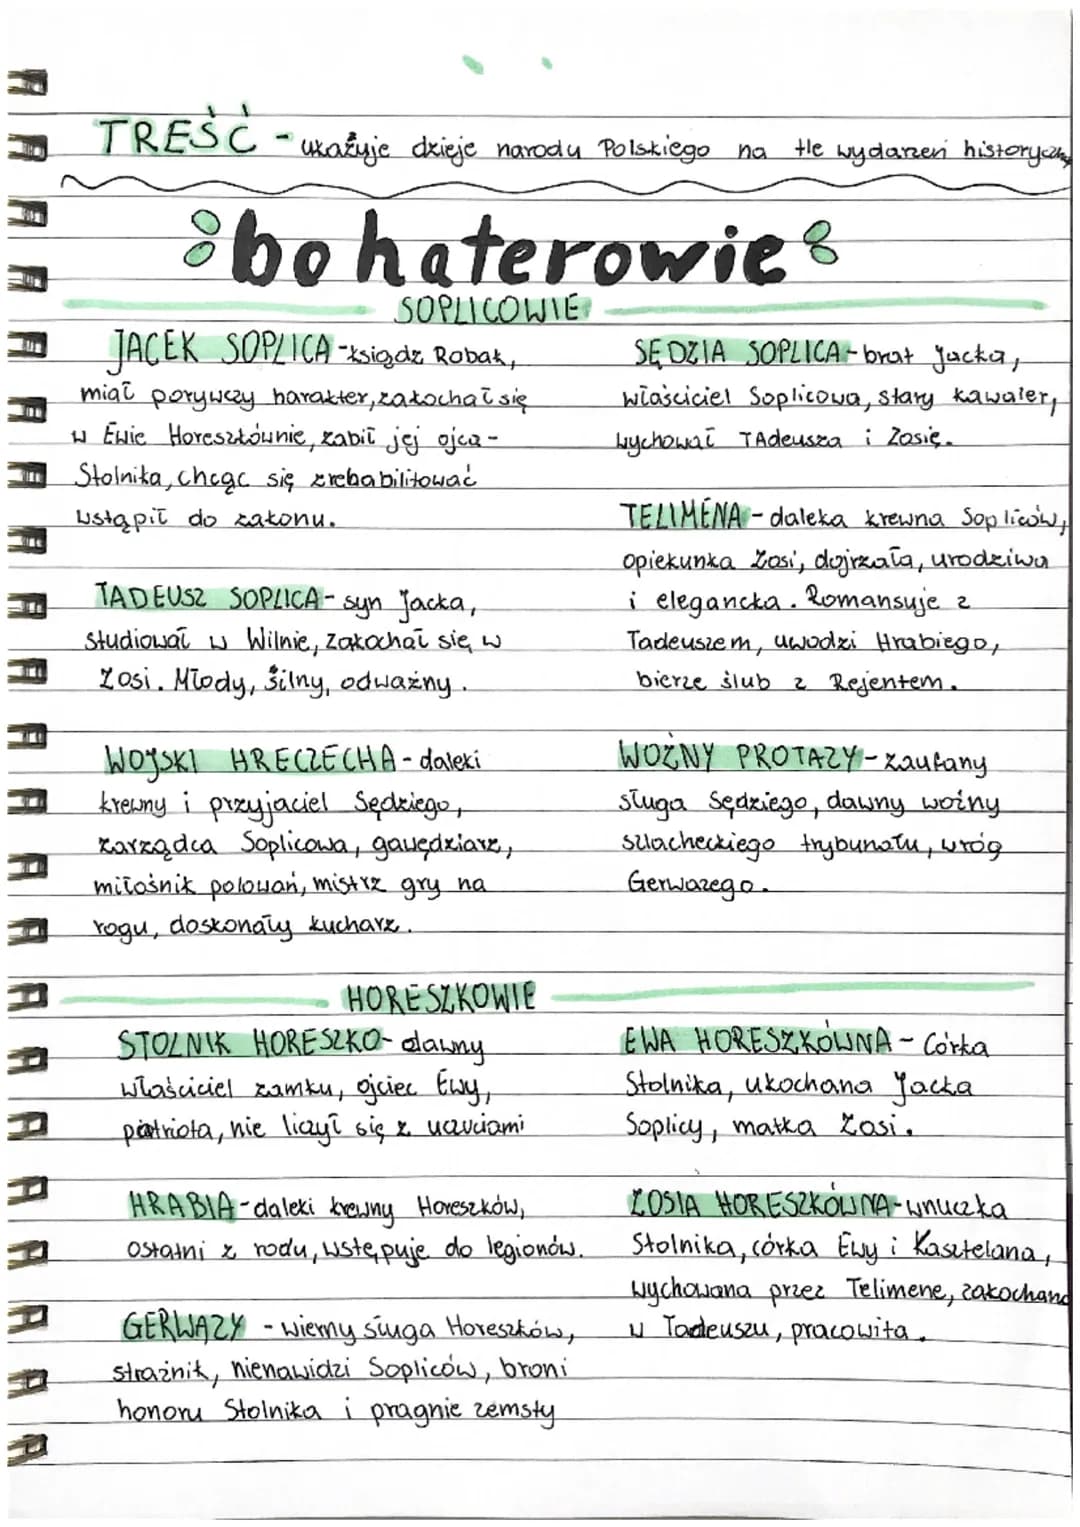 TREŚĆ - ukazuje dzieje narodu Polskiego na tle wydarzeń
bohaterowie
SOPLICOWIE
JACEK SOPLICA - ksiądz Robak,
miał porywczy harakter, zakochał się
w Ewie Horeszkównie, zabił jej ojca -
Stolnika, chcąc się zrehabilitować
wstąpił do zakonu.
SĘDZIA SOPLICA - brat Jacka,
właściciel Soplicowa, stary kawaler,
wychował TAdeusza i Zosię.
TELIMENA - daleka krewna Sopliców,
opiekunka Zosi, dojrzała, urodziwa
i elegancka. Romansuje z
Tadeuszem, uwodzi Hrabiego,
bierze ślub z Rejentem.
TADEUSZ SOPLICA - syn Jacka,
studiował w Wilnie, zakochał się w
Zosi. Młody, silny, odważny.
WOJSKI HRECZECHA - daleki
krewny i przyjaciel Sędziego,
zarządca Soplicowa, gawędziarz,
miłośnik polowań, mistrz gry na
rogu, doskonały kucharz.
WOŹNY PROTAZY - zaufany
sługa Sędziego, dawny woźny
szlacheckiego trybunału, wróg
Gerwazego.
HORESZKOWIE
STOLNIK HORESZKO - dawny
właściciel zamku, ojciec Ewy,
patriota, nie liczył się z uczuciami
EWA HORESZKÓWNA - Córka
Stolnika, ukochana Jacka
Soplicy, matka Zosi.
HRABIA - daleki krewny Horeszków,
ostatni z rodu, wstępuje do legionów.
ZOSIA HORESZKÓWNA - wnuczka
Stolnika, córka Ewy i Kasztelana,
wychowana przez Telimene, zakochana
w Tadeuszu, pracowita.
GERWAZY - wierny sługa Horeszków,
strażnik, nienawidzi Sopliców, broni
honoru Stolnika i pragnie zemsty